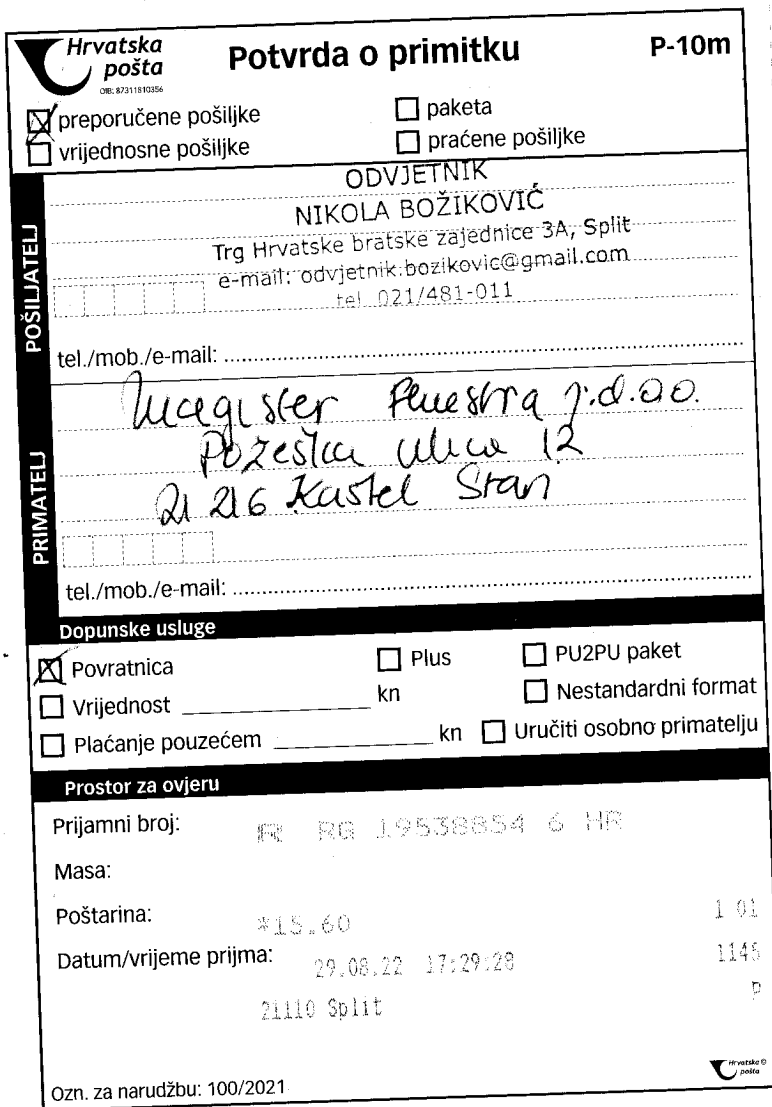 Hrvatska
pošta
OIB: 87311810356
Potvrda o primitku
P-10m
preporučene pošiljke
paketa
vrijednosne pošiljke
praćene pošiljke
POŠILJATELJ
ODVJETNIK
NIKOLA BOŽIKOVIĆ
Trg Hrvatske bratske zajednice 3A, Split
e-mail: odvjetnik.bozikovic@gmail.com
tel. 021/481-011
tel./mob./e-mail:
PRIMATELJ
Magister Fenestra j.d.o.o.
Požeška ulica 12
21 216 Kaštel Stari
tel./mob./e-mail:
Dopunske usluge
Povratnica
Plus
PU2PU paket
Vrijednost kn
Nestandardni format
Plaćanje pouzećem kn
Uručiti osobno primatelju
Prostor za ovjeru
Prijamni broj: R RG 19538854 6 HR
Masa:
Poštarina: *15.60 1 01
Datum/vrijeme prijma: 29.08.22 17:29:28 1145
21110 Split P
Ozn. za narudžbu: 100/2021
Hrvatska
pošta